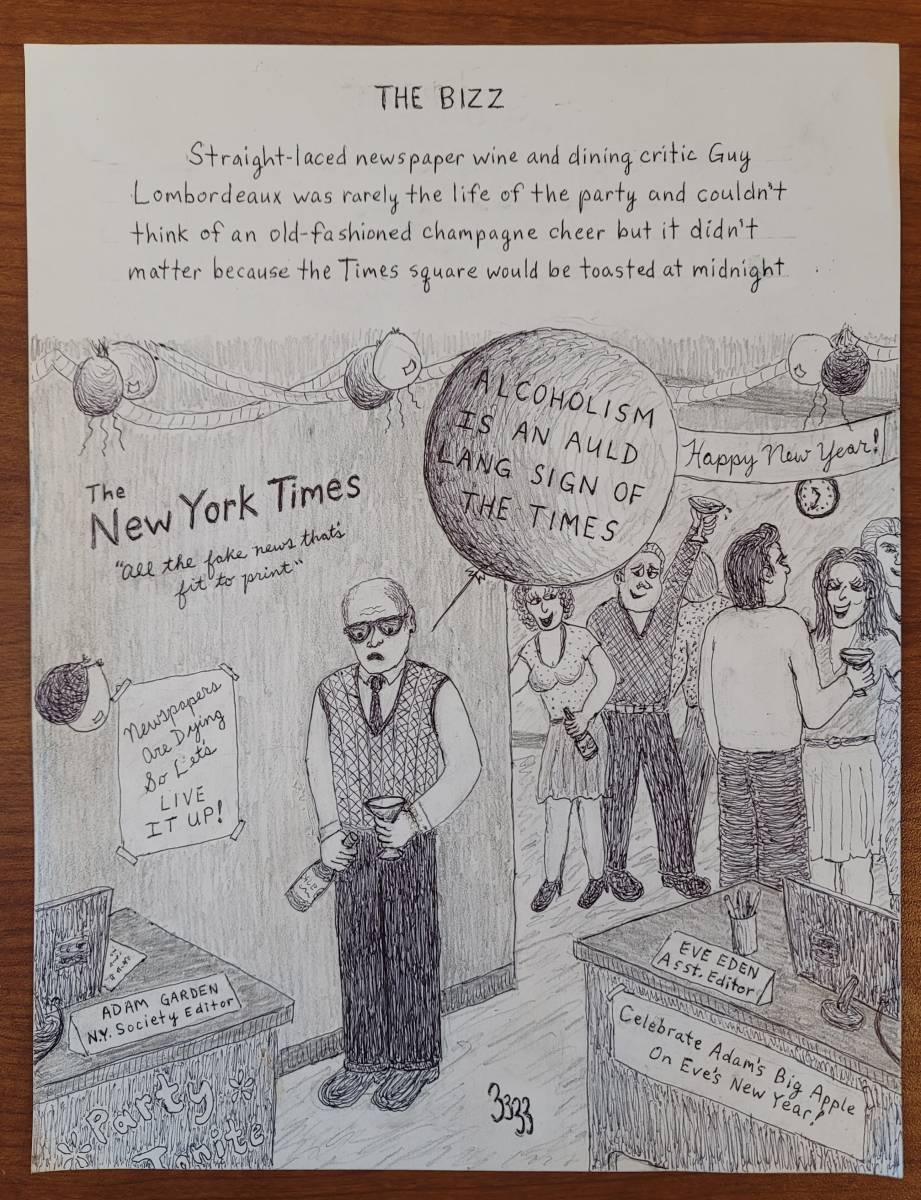 THE BIZZ
Straight-laced newspaper wine and dining critic Guy
Lombordeaux was rarely the life of the party and couldn't
think of an old-fashioned champagne cheer but it didn't
matter because the Times square would be toasted at midnight
ALCOHOLISM
IS AN AULD
LANG SIGN OF
THE TIMES
Happy New Year!
The
New York Times
"all the fake news that's
fit to print"
Newspapers
Are Dying
So Let's
LIVE
IT UP!
ADAM GARDEN
N.Y. Society Editor
Party
Tonite
EVE EDEN
Asst. Editor
Celebrate Adam's Big Apple
On Eve's New Year!
3333